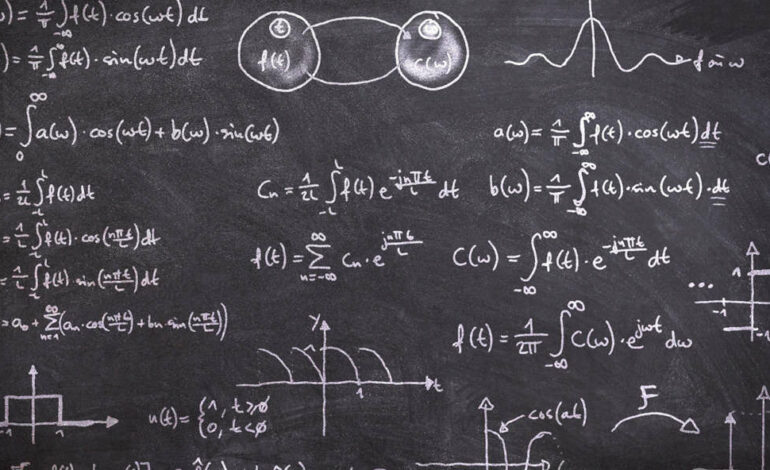 ) = 1/π ∫_{-∞}^{∞} f(t)·cos(ωt) dt
) = 1/π ∫_{-∞}^{∞} f(t)·sin(ωt) dt
t
f(t)
C(ω)
= ∫_0^∞ a(ω)·cos(ωt) + b(ω)·sin(ωt)
a(ω) = 1/π ∫_{-∞}^{∞} f(t)·cos(ωt) dt
= 1/2L ∫_{-L}^{L} f(t) dt
C_n = 1/2L ∫_{-L}^{L} f(t) e^{-jnπt/L} dt
b(ω) = 1/π ∫_{-∞}^{∞} f(t)·sin(ωt)·dt
= 1/L ∫_{-L}^{L} f(t)·cos(nπt/L) dt
f(t) = Σ_{n=-∞}^{∞} C_n·e^{jnπt/L}
C(ω) = ∫_{-∞}^{∞} f(t)·e^{-jnπt/L} dt
= 1/L ∫_{-L}^{L} f(t) sin(nπt/L) dt
...
1
-1
-1
= a_0 + Σ_{n=1}^{∞} (a_n·cos(nπt/L) + b_n·sin(nπt/L))
f(t) = 1/2π ∫_{-∞}^{∞} C(ω)·e^{jωt} dω
y
1
t
-1
1
u(t) = {1, t≥0
{0, t<0
cos(at)
F